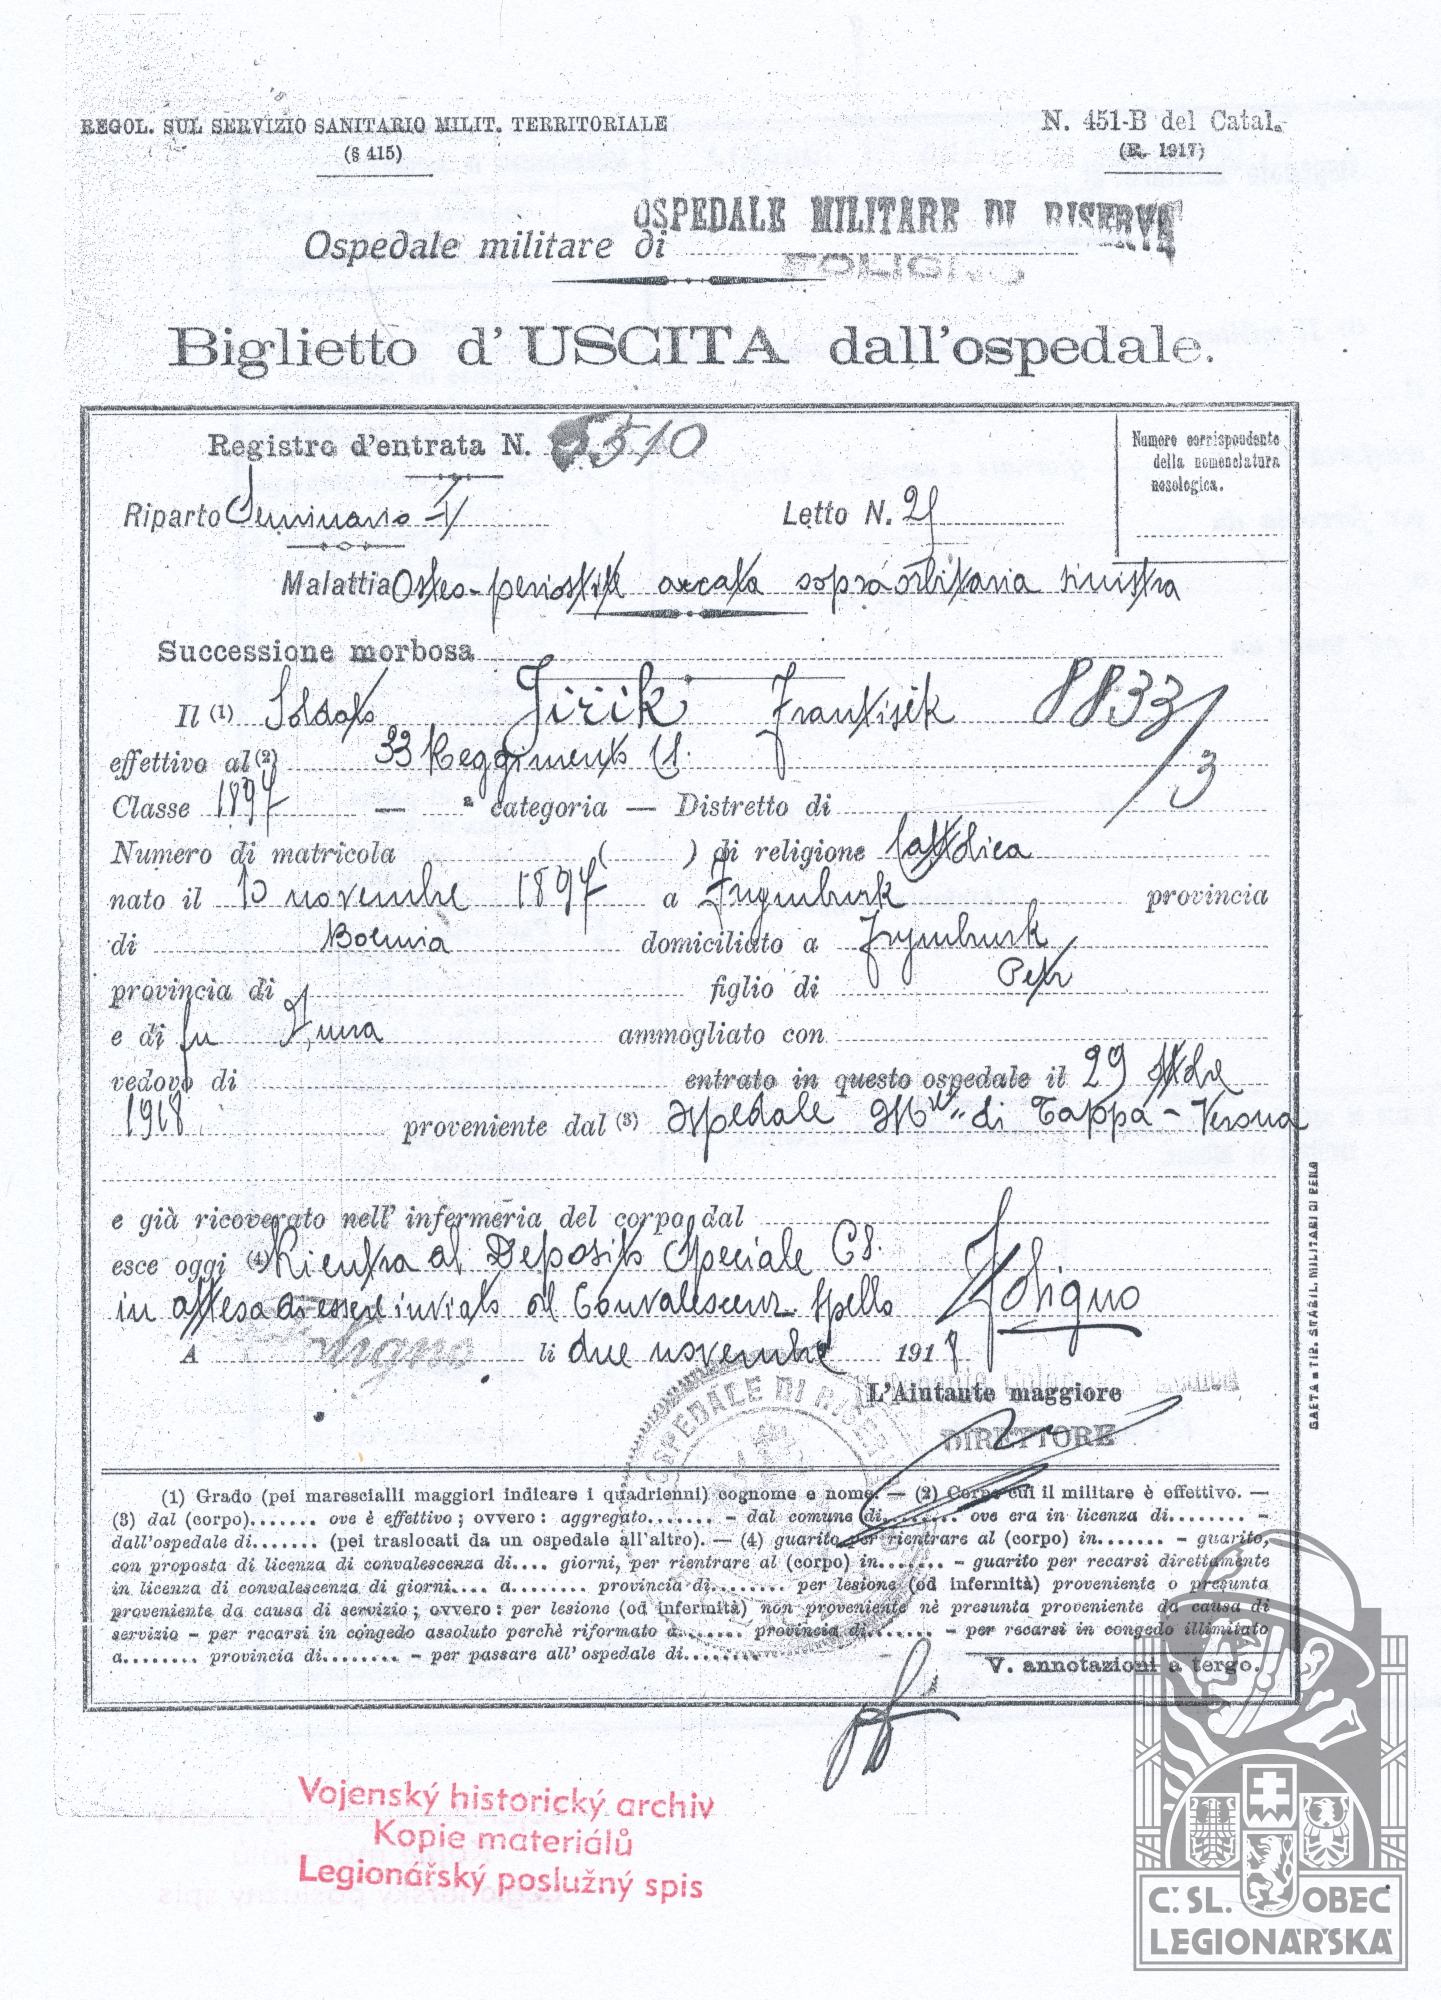 REGOL. SUL SERVIZIO SANITARIO MILIT. TERRITORIALE
(§ 415)
N. 451-B del Catal.
(R. 1917)
Ospedale militare di OSPEDALE MILITARE DI RISERVA
FOLIGNO
Biglietto d'USCITA dall'ospedale.
Registro d'entrata N. 5510
Numero corrispondente
della nomenclatura
nosologica.
Riparto Seminario I Letto N. 25
Malattia Osteo-periostite arcata sopraorbitaria sinistra
Successione morbosa
Il (1) Soldato Jirik Frantisek 8833/3
effettivo al (2) 33 Reggimento CS.
Classe 1897 — ª categoria — Distretto di
Numero di matricola ( ) di religione Cattolica
nato il 10 novembre 1897 a Frymburk provincia
di Boemia domiciliato a Frymburk
provincia di figlio di Petr
e di fu Anna ammogliato con
vedovo di entrato in questo ospedale il 29 ottobre
1918 proveniente dal (3) Ospedale Mre di Tappa - Verona
e già ricoverato nell' infermeria del corpo dal
esce oggi (4) Rientra al Deposito Speciale CS.
in attesa di essere inviato al Convalescenz. Spello Foligno
A Foligno li due novembre 1918
L'Aiutante maggiore
DIRETTORE
OSPEDALE DI RISERVA
(1) Grado (pei marescialli maggiori indicare i quadrienni) cognome e nome. — (2) Corpo cui il militare è effettivo. —
(3) dal (corpo)....... ove è effettivo; ovvero: aggregato....... - dal comune di........ ove era in licenza di........ -
dall'ospedale di....... (pei traslocati da un ospedale all'altro). — (4) guarito per rientrare al (corpo) in....... - guarito,
con proposta di licenza di convalescenza di.... giorni, per rientrare al (corpo) in....... - guarito per recarsi direttamente
in licenza di convalescenza di giorni.... a........ provincia di........ per lesione (od infermità) proveniente o presunta
proveniente da causa di servizio; ovvero: per lesione (od infermità) non proveniente nè presunta proveniente da causa di
servizio - per recarsi in congedo assoluto perchè riformato a....... provincia di....... - per recarsi in congedo illimitato
a........ provincia di........ - per passare all'ospedale di........
V. annotazioni a tergo.
GAETA - TIP. STABIL. MILITARI DI PENA
Vojenský historický archiv
Kopie materiálů
Legionářský poslužný spis
Č. SL. OBEC
LEGIONÁŘSKÁ